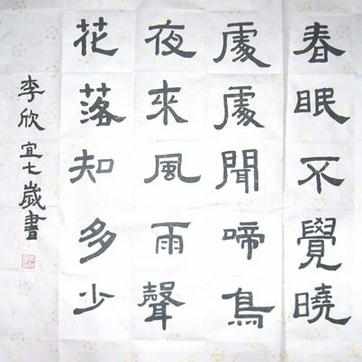 春眠不覺曉
處處聞啼鳥
夜來風雨聲
花落知多少
李欣宜七歲書